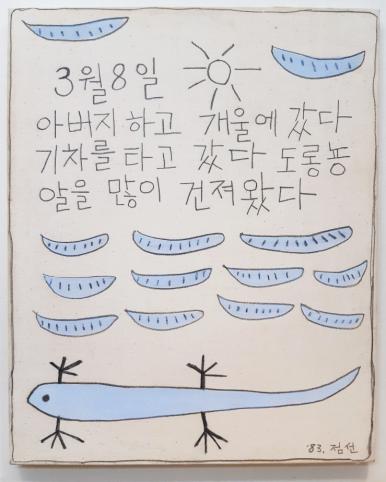 3월8일
아버지하고 개울에 갔다
기차를 타고 갔다 도롱뇽
알을 많이 건져왔다
'83. 점선